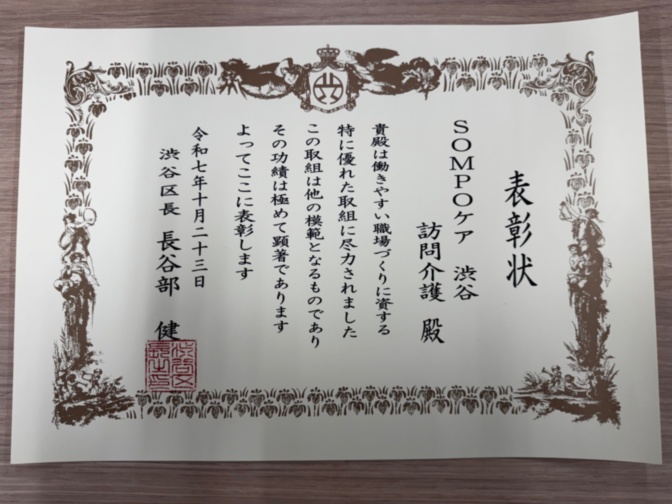 表彰状
SOMPOケア 渋谷
訪問介護 殿
貴殿は働きやすい職場づくりに資する
特に優れた取組に尽力されました
この取組は他の模範となるものであり
その功績は極めて顕著であります
よってここに表彰します
令和七年十月二十三日
渋谷区長 長谷部 健
渋谷区長之印